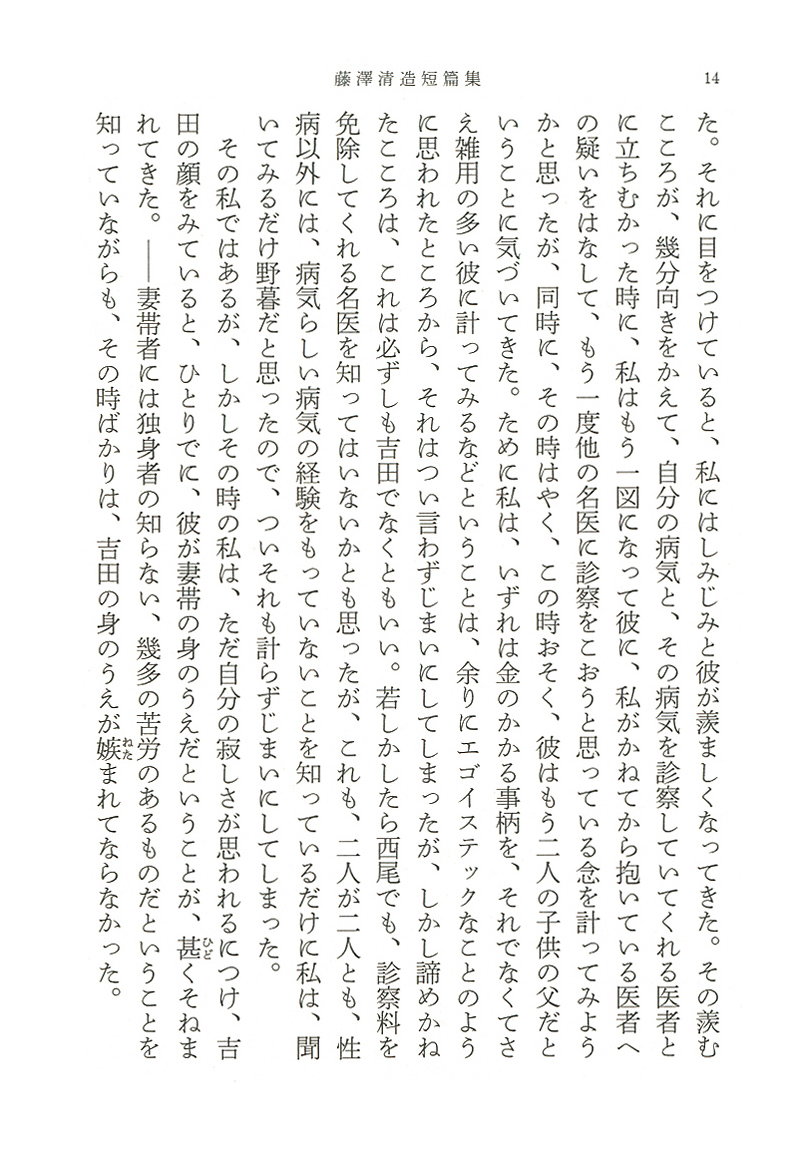 藤澤清造短篇集
14
た。それに目をつけていると、私にはしみじみと彼が羨ましくなってきた。その羨む
こころが、幾分向きをかえて、自分の病気と、その病気を診察していてくれる医者と
に立ちむかった時に、私はもう一図になって彼に、私がかねてから抱いている医者へ
の疑いをはなして、もう一度他の名医に診察をこおうと思っている念を計ってみよう
かと思ったが、同時に、その時はやく、この時おそく、彼はもう二人の子供の父だと
いうことに気づいてきた。ために私は、いずれは金のかかる事柄を、それでなくてさ
え雑用の多い彼に計ってみるなどということは、余りにエゴイステックなことのよう
に思われたところから、それはつい言わずじまいにしてしまったが、しかし諦めかね
たこころは、これは必ずしも吉田でなくともいい。若しかしたら西尾でも、診察料を
免除してくれる名医を知ってはいないかとも思ったが、これも、二人が二人とも、性
病以外には、病気らしい病気の経験をもっていないことを知っているだけに私は、聞
いてみるだけ野暮だと思ったので、ついそれも計らずじまいにしてしまった。
その私ではあるが、しかしその時の私は、ただ自分の寂しさが思われるにつけ、吉
田の顔をみていると、ひとりでに、彼が妻帯の身のうえだということが、甚くそねま
れてきた。――妻帯者には独身者の知らない、幾多の苦労のあるものだということを
知っていながらも、その時ばかりは、吉田の身のうえが嫉まれてならなかった。
ひど
ねた